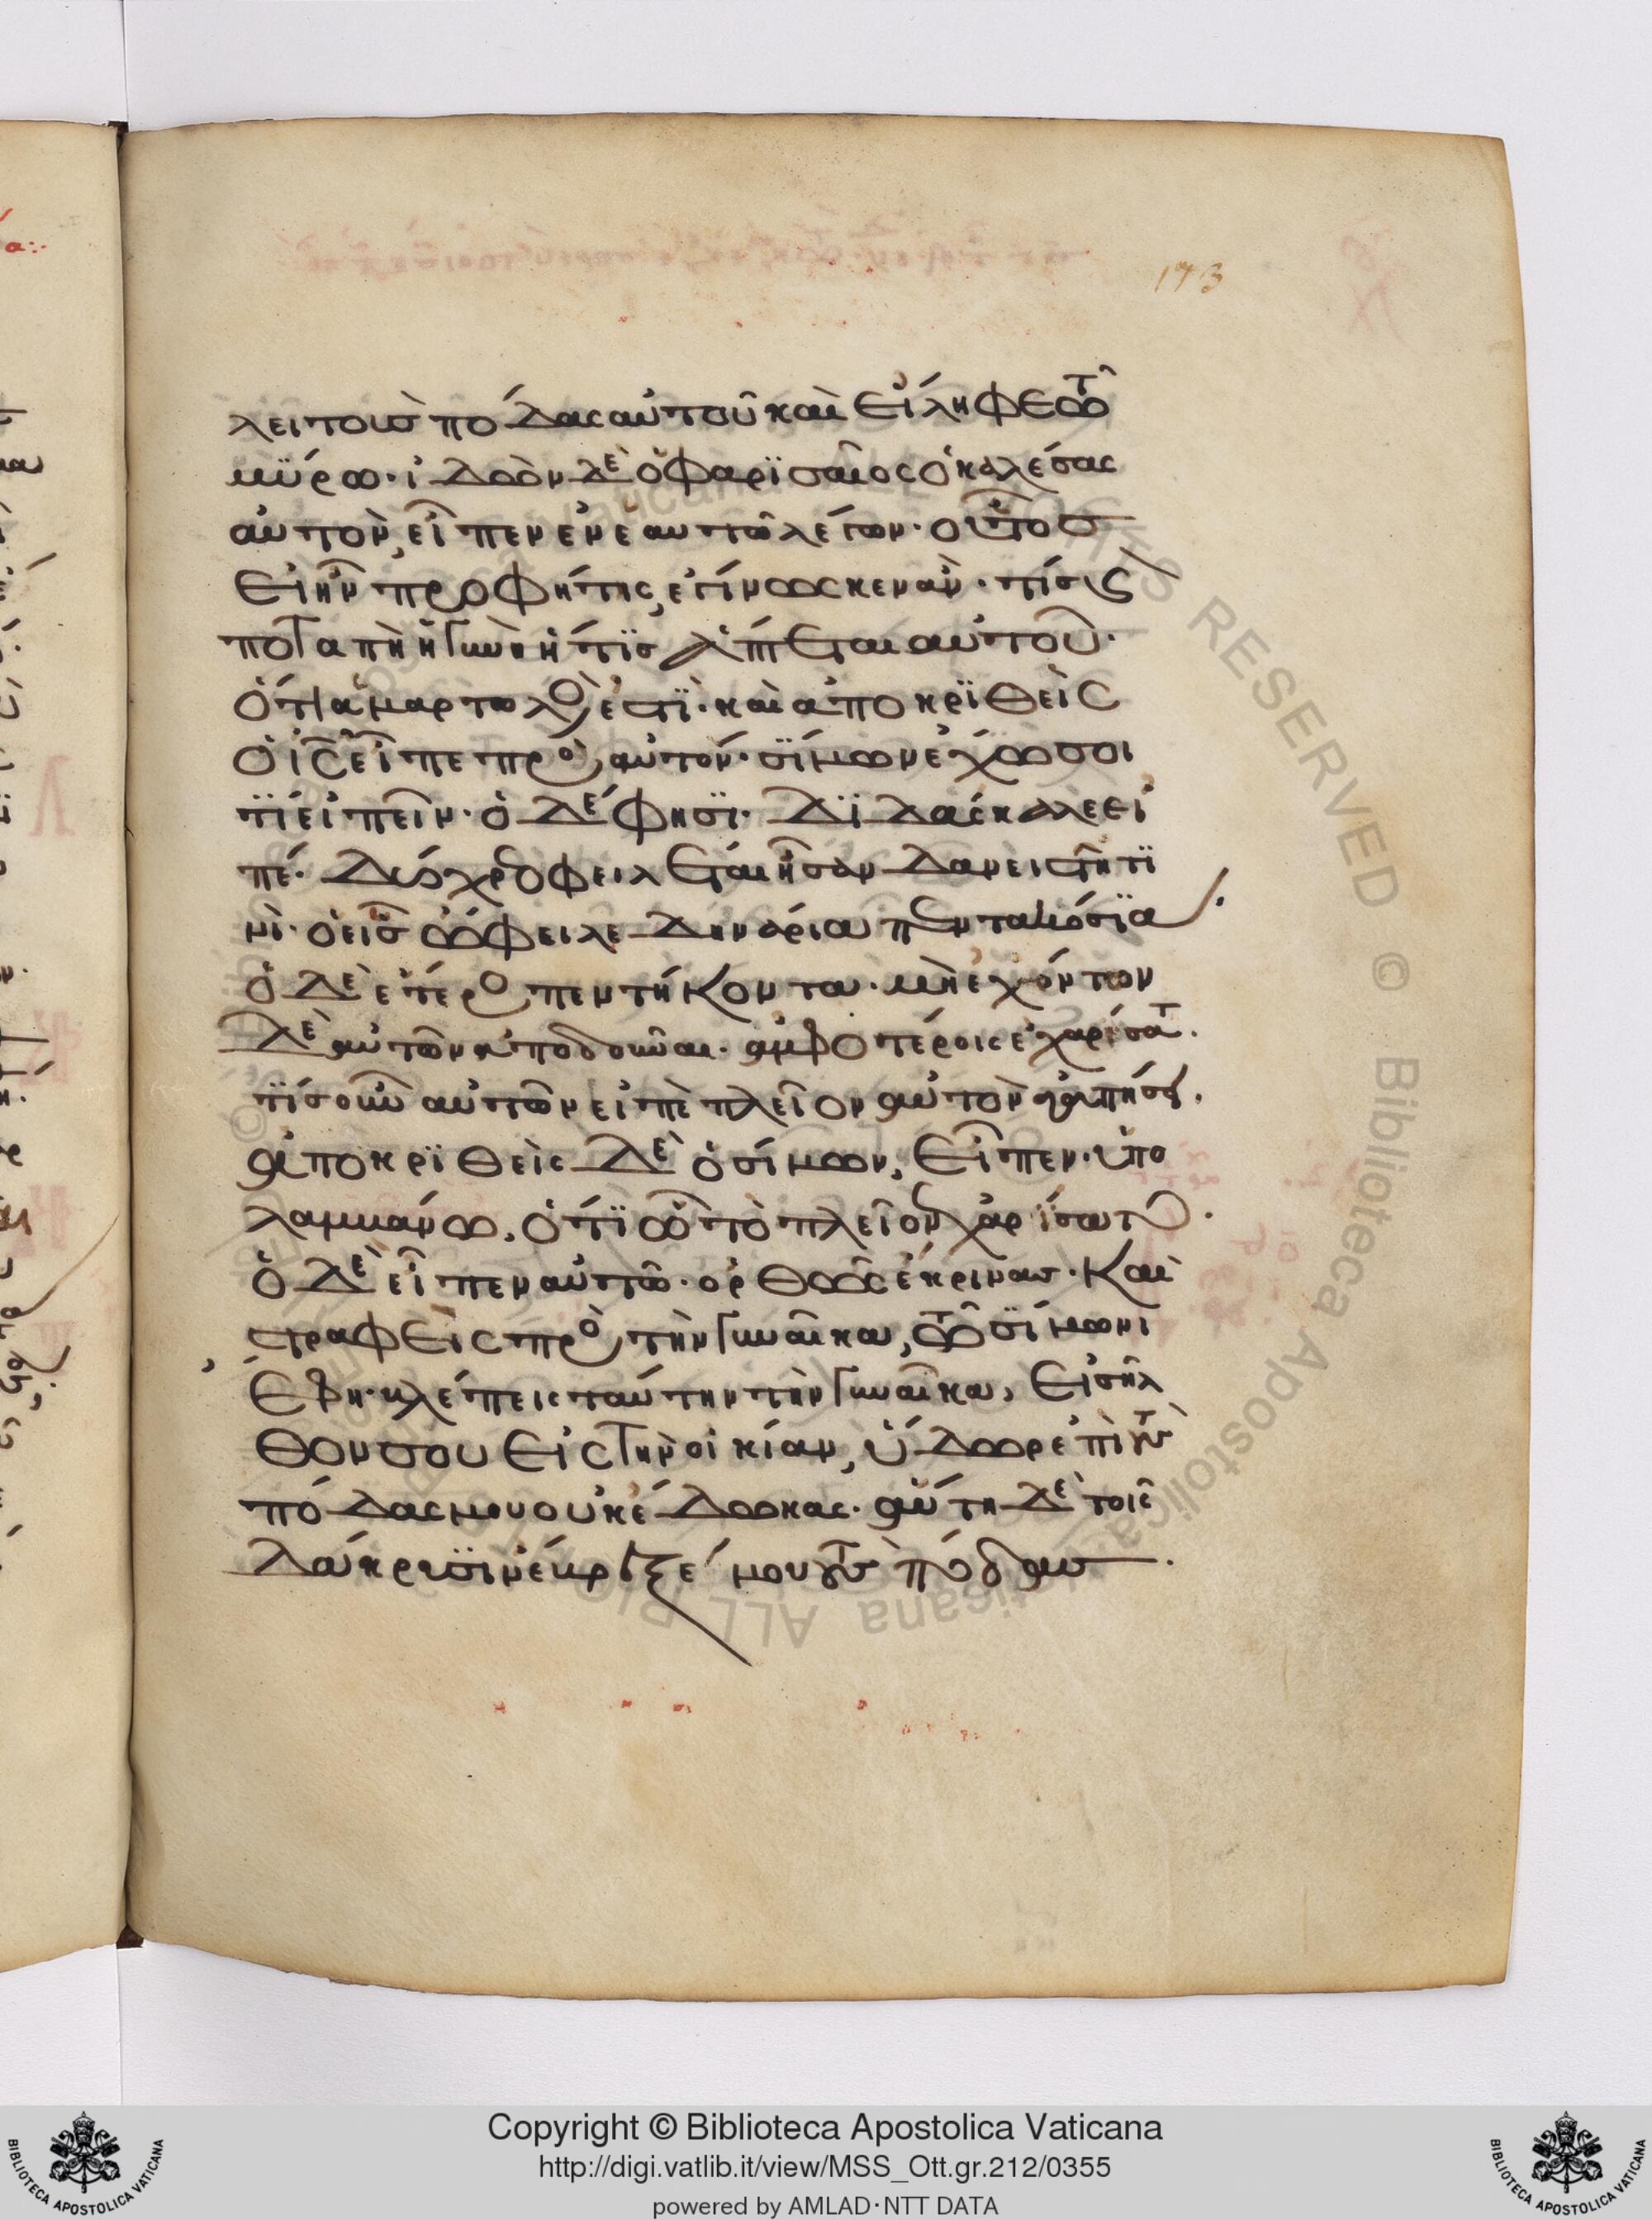 173
λει τοὺς πόδας αὐτοῦ καὶ εἴληφε τῶ
μύρω· ἰδὼν δὲ ὁ φαρϊσαῖος ὁ καλέσας
αὐτὸν, εἶπεν ἐν ἑαυτῶ λέγων· οὗτος
εἰ ἦν προφήτης, ἐγίνωσκεν ἂν· τίς καὶ
ποταπὴ ἡ γυνὴ ἥτϊς ἅπτεται αὐτοῦ·
ὅτι ἁμαρτωλὸς ἐστϊ· καὶ ἀποκρϊθεὶς
ὁ ις εἶπε πρὸς αὐτόν· σίμων ἔχω σοι
τϊ εἰπεῖν· ὁ δέ φησϊ· δϊδάσκαλε εἰ
πέ· δύο χρεοφειλέται ἦσαν δανειστῆ τϊ
νϊ· ὁ εἷς ὤφειλε δηνάρια πεντακόσϊα
ὁ δὲ ἕτερος πεντήκοντα· μὴ ἐχόντων
δὲ αὐτῶν ἀποδοῦναι· ἀμφοτέροις ἐχαρίσατ
τϊς οὖν αὐτῶν εἰπὲ πλεῖον αὐτὸν ἀγαπήσει.
ἀποκρϊθεὶς δὲ ὁ σίμων, εἶπεν· ὑπο
λαμβάνω, ὅτϊ ὧ τὸ πλεῖον ἐχαρίσατο·
ὁ δὲ εἶπεν αὐτῶ· ὀρθῶς ἔκρινας· καὶ
στραφεὶς πρὸς τὴν γυναῖκα, τῶ σίμωνι
ἔφη· βλέπεις ταύτην τὴν γυναῖκα, εἰσῆλ
θον σου εἰς τὴν οἰκίαν, ὕδωρ ἐπὶ τοὺς
πόδας μου οὐκ ἔδωκας· αὕτη δὲ τοῖς
δάκρυσϊν ἔβρεξέ μου τοὺς πόδας·
Copyright © Biblioteca Apostolica Vaticana
http://digi.vatlib.it/view/MSS_Ott.gr.212/0355
powered by AMLAD·NTT DATA
BIBLIOTECA APOSTOLICA VATICANA
BIBLIOTECA APOSTOLICA VATICANA